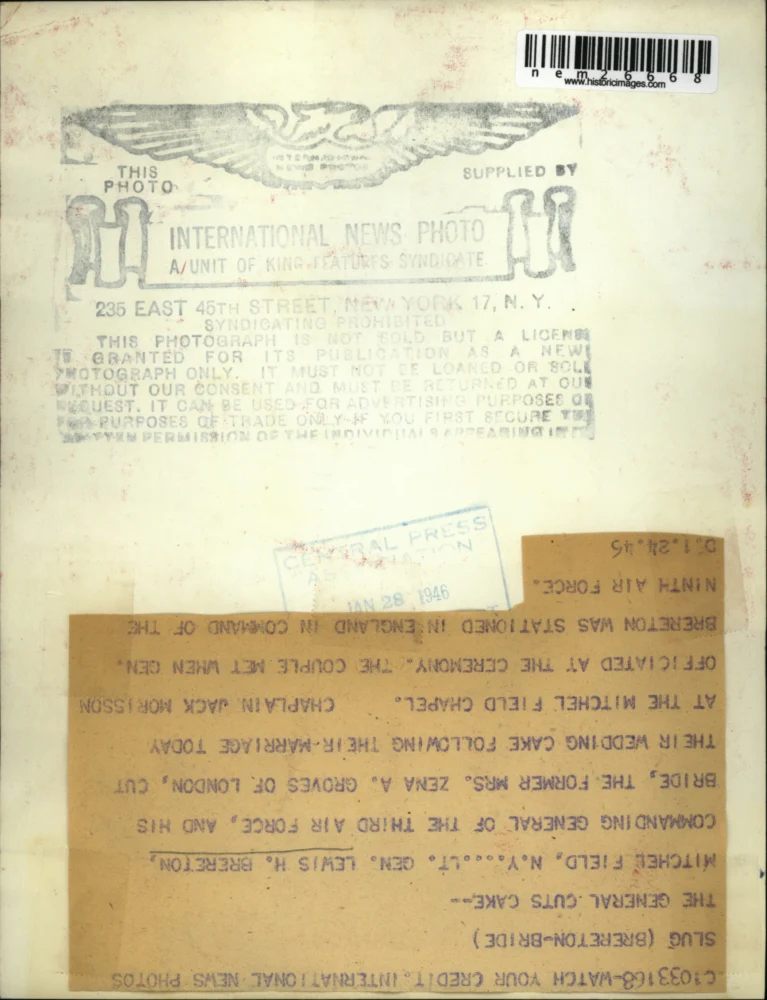 nem26668
www.historicimages.com
THIS
PHOTO
SUPPLIED BY
INTERNATIONAL NEWS PHOTO
A/UNIT OF KING FEATURES SYNDICATE
235 EAST 45TH STREET, NEW YORK 17, N. Y.
SYNDICATING PROHIBITED
THIS PHOTOGRAPH IS NOT SOLD BUT A LICENSE
IS GRANTED FOR ITS PUBLICATION AS A NEWS
PHOTOGRAPH ONLY. IT MUST NOT BE LOANED OR SOLD
WITHOUT OUR CONSENT AND MUST BE RETURNED AT OUR
REQUEST. IT CAN BE USED FOR ADVERTISING PURPOSES OR
FOR PURPOSES OF TRADE ONLY IF YOU FIRST SECURE THE
WRITTEN PERMISSION OF THE INDIVIDUALS APPEARING IN IT
CENTRAL PRESS
ASSOCIATION
JAN 28 1946
C1033168-WATCH YOUR CREDIT. INTERNATIONAL NEWS PHOTOS
SLUG (BRERETON-BRIDE)
THE GENERAL CUTS CAKE--
MITCHEL FIELD, N.Y.....LT. GEN. LEWIS H. BRERETON,
COMMANDING GENERAL OF THE THIRD AIR FORCE, AND HIS
BRIDE, THE FORMER MRS. ZENA A. GROVES OF LONDON, CUT
THEIR WEDDING CAKE FOLLOWING THEIR MARRIAGE TODAY
AT THE MITCHEL FIELD CHAPEL. CHAPLAIN JACK MORISSON
OFFICIATED AT THE CEREMONY. THE COUPLE MET WHEN GEN.
BRERETON WAS STATIONED IN ENGLAND IN COMMAND OF THE
NINTH AIR FORCE.
1.24.45